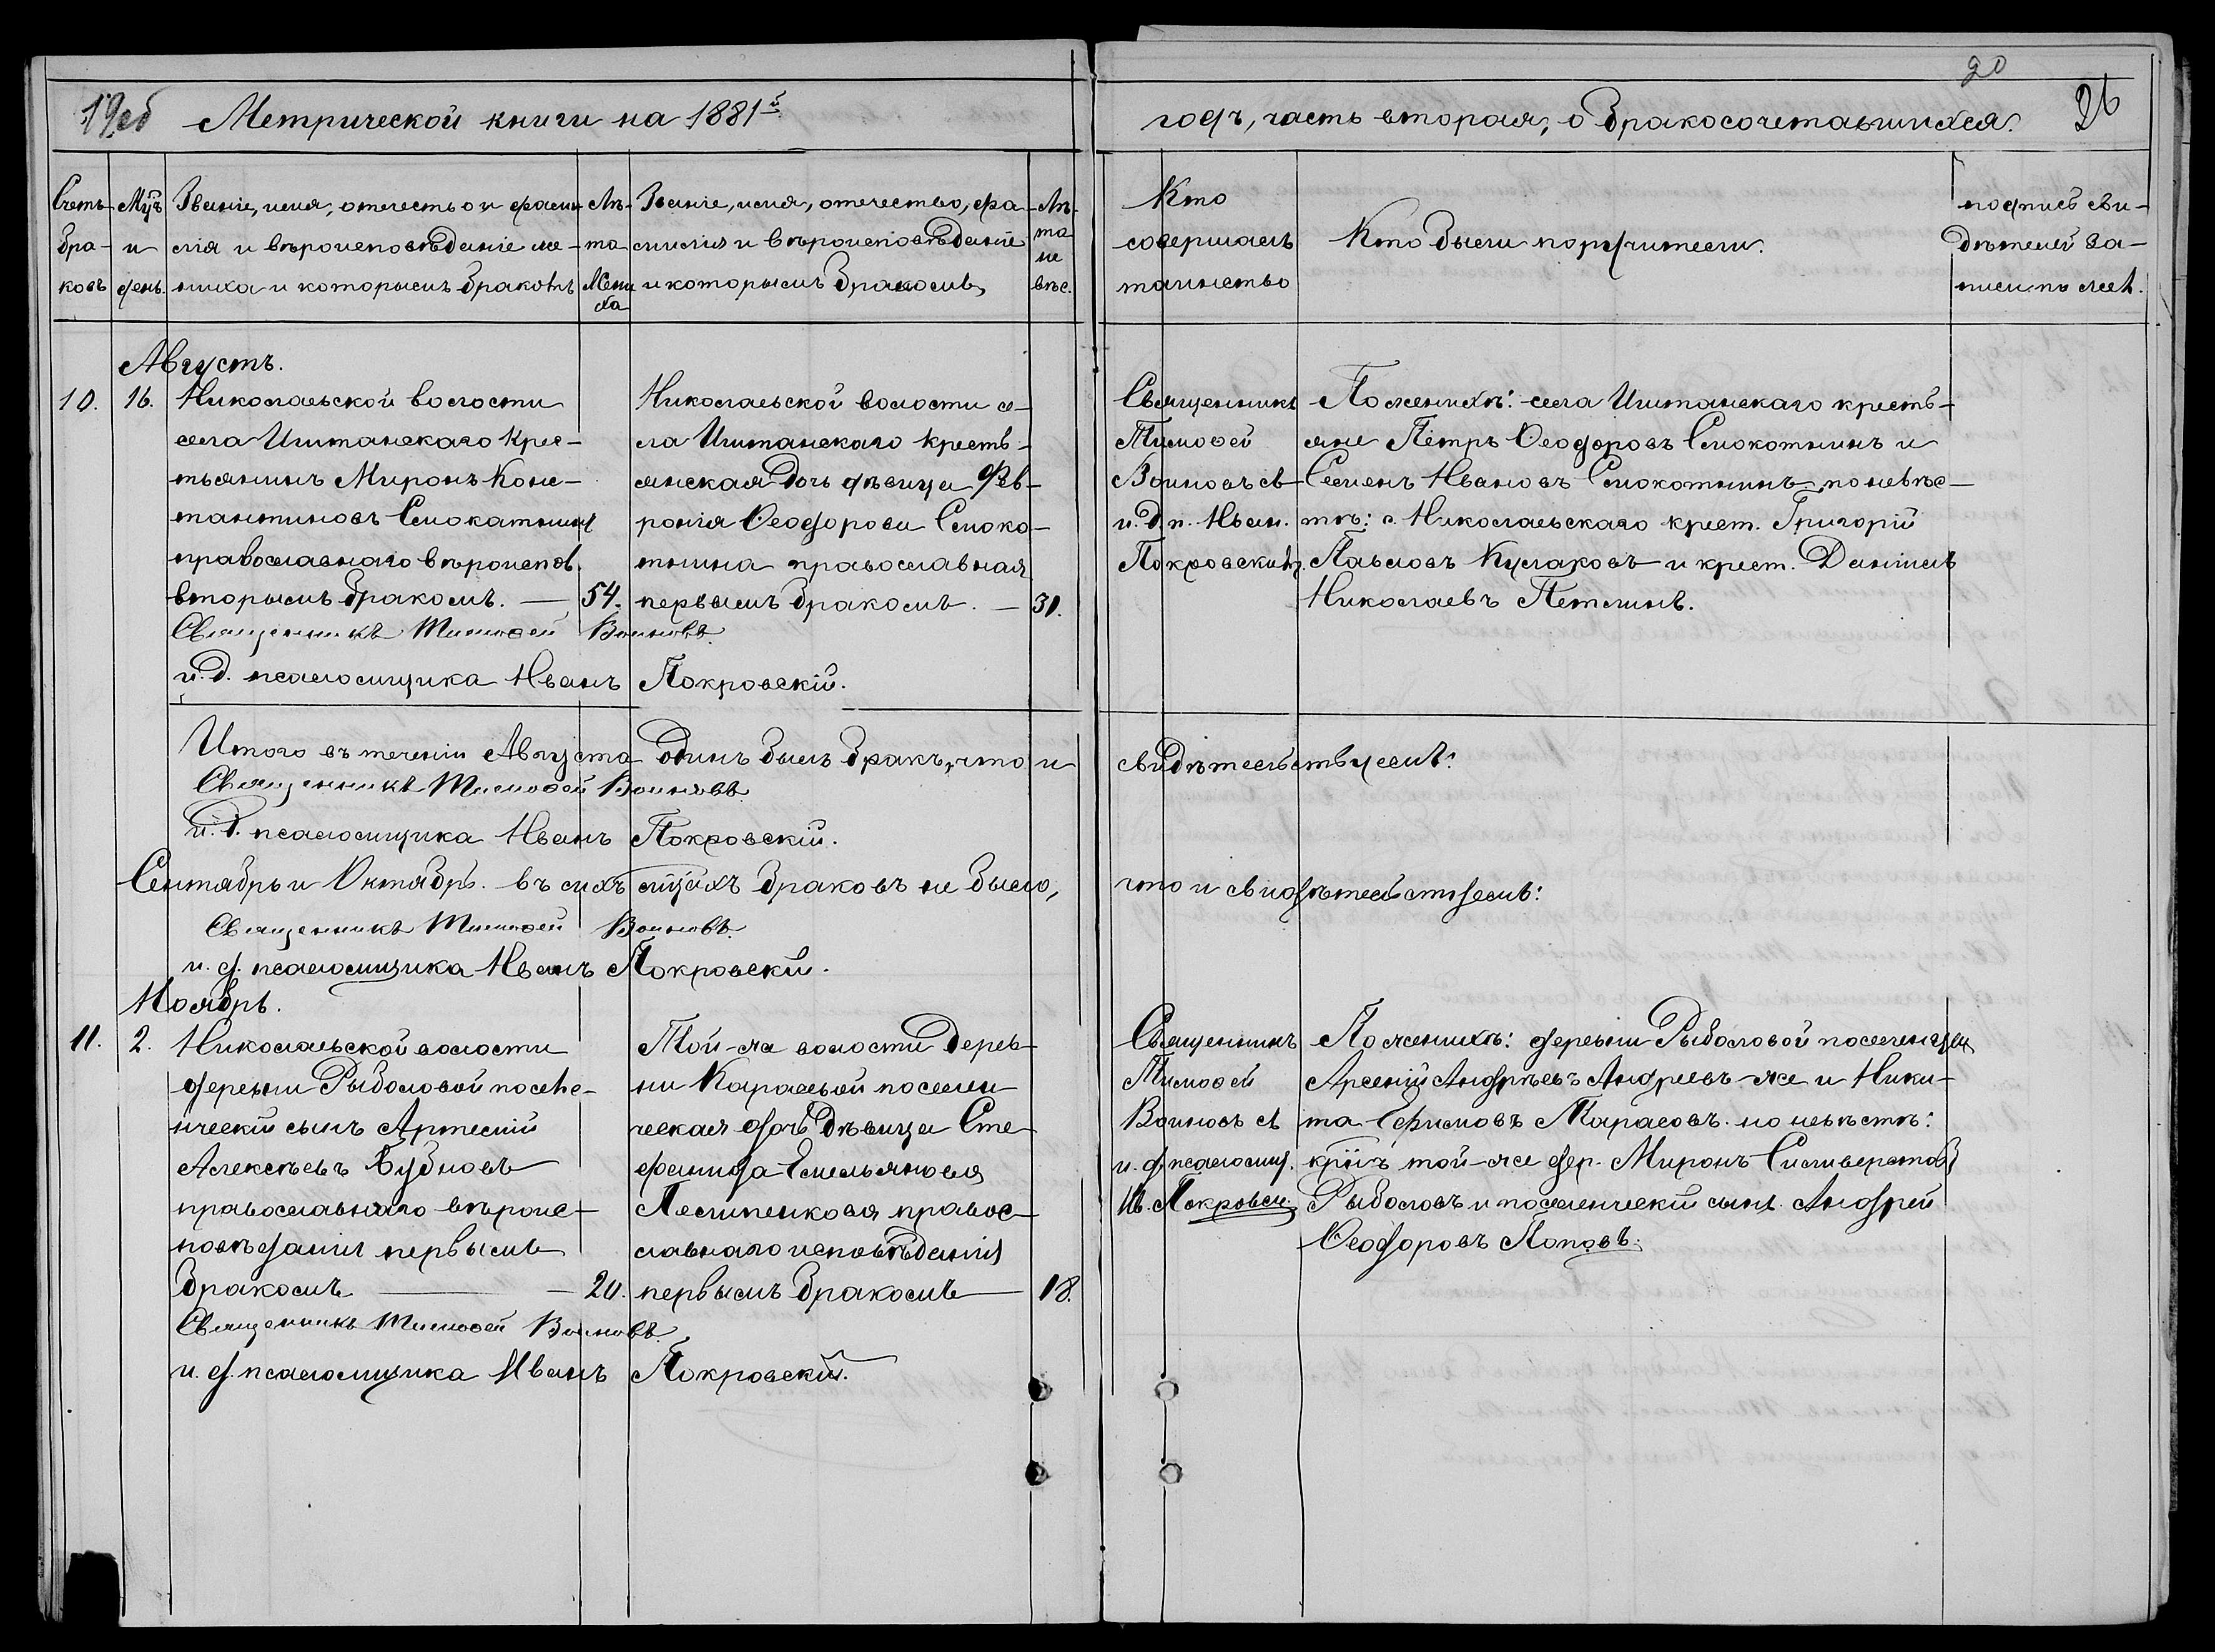 20
26
Метрической книги на 1881й
годъ, часть вторая, о бракосочетавшихся.
Счетъ
бра-
ковъ
Мц̃ъ
и
день.
Званіе, имя, отчество и фами-
лія и вѣроисповѣданіе же-
ниха и которымъ бракомъ
Лѣ-
та
Жени
ха
Званіе, имя, отчество, фа-
милія и вѣроисповѣданіе
и которымъ бракомъ
Лѣ-
та
не
вѣс.
Кто
совершалъ
таинство
Кто были поручители.
подпись сви-
дѣтелей за-
писи по жел.
Августъ.
10.
16.
Николаевской волости
села Иштанскаго крес-
тьянинъ Миронъ Конс-
тантиновъ Смокатнинъ
православнаго вѣроиспов.
вторымъ бракомъ. —
54.
Николаевской волости се-
ла Иштанскаго кресть-
янская дочь дѣвица Фев-
ронія Ѳеодорова Смоко-
тнина православная
первымъ бракомъ. —
30.
Священникъ
Тимоѳей
Воиновъ съ
и. д. п. Иван.
Покровскимъ
По женихѣ: села Иштанскаго кресть-
яне Петръ Ѳеодоровъ Смокотнинъ и
Семенъ Ивановъ Смокотнинъ, по невѣс-
тѣ: с. Николаевскаго крест. Григорій
Павловъ Кулаковъ и крест. Даніилъ
Николаевъ Петлинъ.
Священникъ Тимоѳей Воиновъ.
и. д. псаломщика Иванъ Покровскій.
Итого въ теченіи Августа одинъ былъ бракъ, что и
свидѣтельствуемъ:
Священникъ Тимоѳей Воиновъ.
и. д. псаломщика Иванъ Покровскій.
Сентябрь и Октябрь. въ сихъ мц̃ахъ браковъ не было,
что и свидѣтельствуемъ:
Священникъ Тимоѳей Воиновъ.
и. д. псаломщика Иванъ Покровскій.
Ноябрь.
11.
2.
Николаевской волости
деревни Рыболовой поселе-
нческій сынъ Артемій
Алексѣевъ Бубновъ
православнаго вѣроис-
повѣданія первымъ
бракомъ —
20.
Той-же волости дерев-
ни Карасевой поселен-
ческая дочь дѣвица Сте-
фанида Емельянова
Пелипенкова правос-
лавнаго исповѣданія
первымъ бракомъ —
18.
Священникъ
Тимоѳей
Воиновъ съ
и. д. псаломщ.
Ив. Покровск.
По женихѣ: деревни Рыболовой поселенцы
Арсеній Андрѣевъ Андреевъ-же и Ники-
та Ефимовъ Карасовъ. по невѣстѣ:
той-же дер. Миронъ Силиверстовъ
Рыболовъ и поселенческій сынъ Андрей
Ѳеодоровъ Поповъ.
Священникъ Тимоѳей Воиновъ.
и. д. псаломщика Иванъ Покровскій.